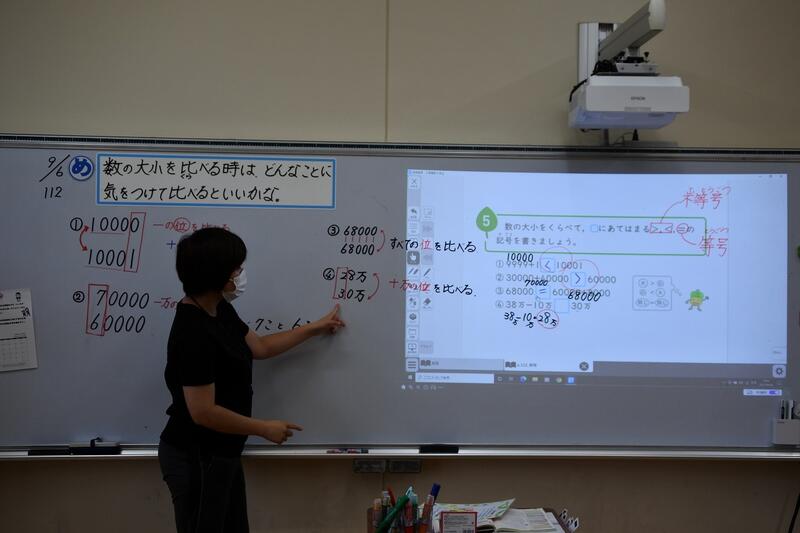 9/6
112
め
数の大小を比べる時は、どんなことに
気をつけて比べるといいかな。
① 10000
10001
一の位を比べる
② 70000
60000
一万の
7こと6こ
③ 68000
68000
すべての位を比べる
④ 28万
30万
十万の位を比べる
EPSON
5
数の大小をくらべて、□にあてはまる >、<、=の
記号を書きましょう。
不等号
等号
10000
① 9999+1 < 10001
② 30000+40000 > 60000
70000
③ 68000 = 60000+8000
68000
④ 38万-10万 □ 30万
38万-10万=28万